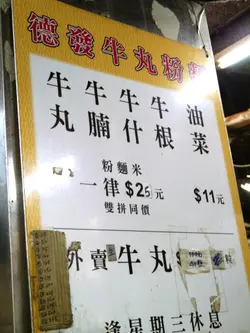 德發牛丸粉麵
牛丸
牛腩
牛什
牛根
油菜
粉麵米
一律$25
$11元
雙拼同價
外賣牛丸$
逢星期三休息